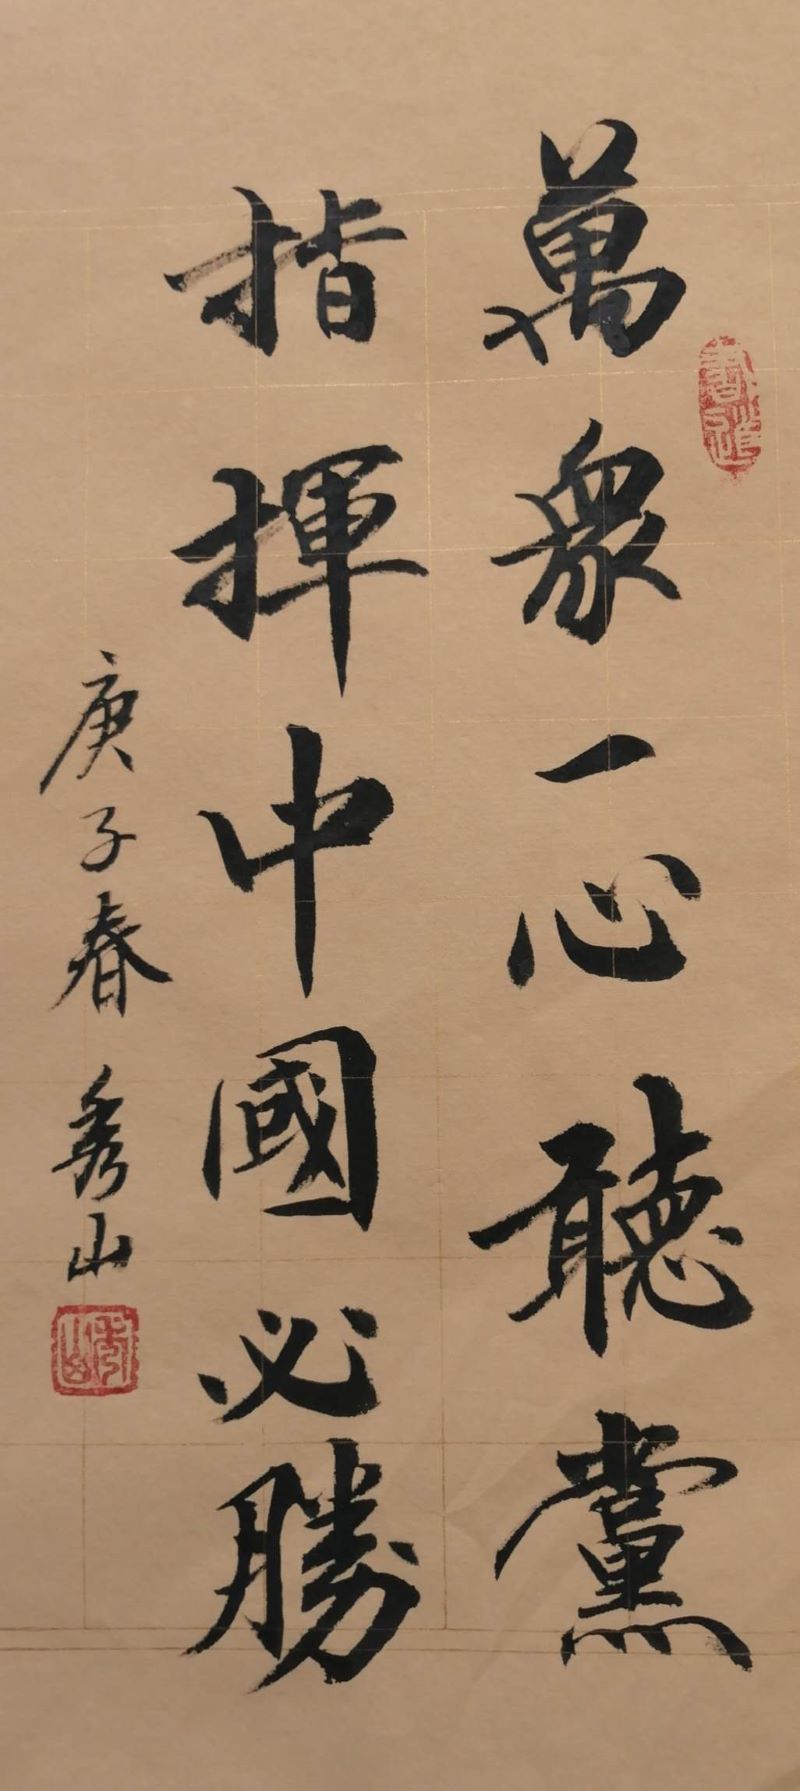 萬衆一心聽黨
指揮中國必勝
庚子春秀山